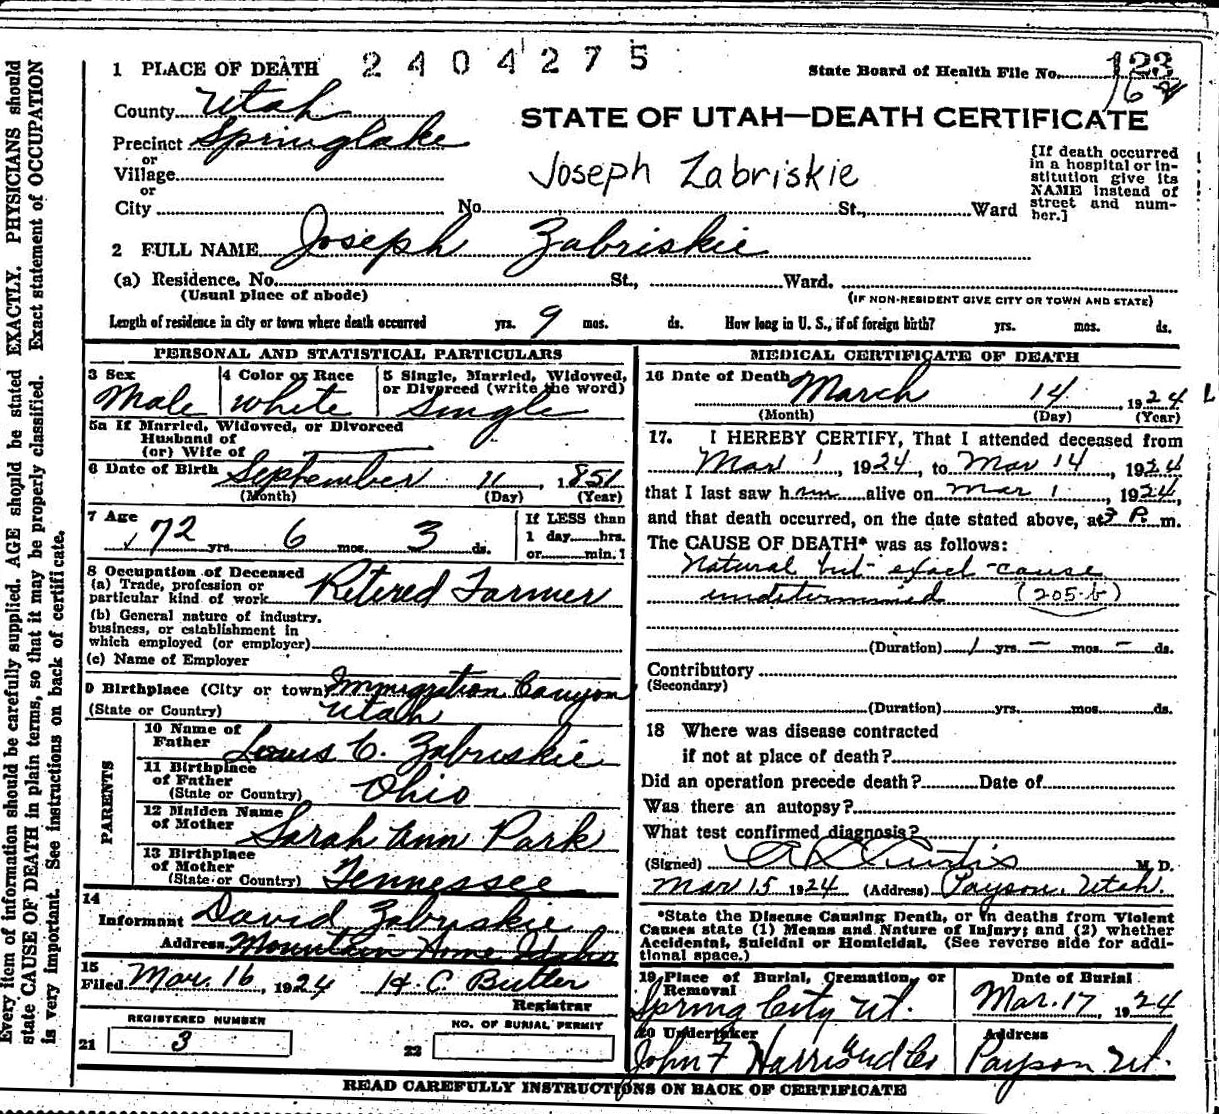 2404275
1 PLACE OF DEATH
State Board of Health File No. 123
16
County Utah
STATE OF UTAH—DEATH CERTIFICATE
Precinct Springlake
or
Village
or
City No. St., Ward
Joseph Zabriskie
[If death occurred
in a hospital or in-
stitution give its
NAME instead of
street and num-
ber.]
2 FULL NAME Joseph Zabriskie
(a) Residence. No. St., Ward.
(Usual place of abode)
(IF NON-RESIDENT GIVE CITY OR TOWN AND STATE)
Length of residence in city or town where death occurred yrs. 9 mos. ds. How long in U. S., if of foreign birth? yrs. mos. ds.
PERSONAL AND STATISTICAL PARTICULARS
3 Sex
Male
4 Color or Race
White
5 Single, Married, Widowed,
or Divorced (write the word)
Single
5a If Married, Widowed, or Divorced
Husband of
(or) Wife of
6 Date of Birth September 11, 1851
(Month) (Day) (Year)
7 Age
72 yrs. 6 mos. 3 ds.
If LESS than
1 day hrs.
or min. ?
8 Occupation of Deceased
(a) Trade, profession or
particular kind of work Ritered Farmer
(b) General nature of industry,
business, or establishment in
which employed (or employer)
(c) Name of Employer
9 Birthplace (City or town) Immigration Canyon
(State or Country) Utah
PARENTS
10 Name of
Father Louis C. Zabriskie
11 Birthplace
of Father
(State or Country) Ohio
12 Maiden Name
of Mother Sarah Ann Park
13 Birthplace
of Mother
(State or Country) Tennessee
14
Informant David Zabriskie
Address Mountain Home Idaho
15
Filed Mar. 16, 1924 H. C. Butler
Registrar
REGISTERED NUMBER
21 3
NO. OF BURIAL PERMIT
22
MEDICAL CERTIFICATE OF DEATH
16 Date of Death March 14, 1924
(Month) (Day) (Year)
17. I HEREBY CERTIFY, That I attended deceased from
Mar 1, 1924, to Mar 14, 1924
that I last saw him alive on Mar 1, 1924,
and that death occurred, on the date stated above, at 3 P. m.
The CAUSE OF DEATH* was as follows:
Natural but exact cause
undetermined (205-b)
(Duration) 1 yrs. – mos. – ds.
Contributory
(Secondary)
(Duration) yrs. mos. ds.
18 Where was disease contracted
if not at place of death?
Did an operation precede death? Date of
Was there an autopsy?
What test confirmed diagnosis?
(Signed) Curtis M. D.
Mar 15 1924 (Address) Payson, Utah.
*State the Disease Causing Death, or in deaths from Violent
Causes state (1) Means and Nature of Injury; and (2) whether
Accidental, Suicidal or Homicidal. (See reverse side for addi-
tional space.)
19 Place of Burial, Cremation, or
Removal
Spring City Ut.
Date of Burial
Mar. 17, 1924
20 Undertaker
John F Harris and Co
Address
Payson Ut.
READ CAREFULLY INSTRUCTIONS ON BACK OF CERTIFICATE
Every item of information should be carefully supplied. AGE should be stated EXACTLY. PHYSICIANS should
state CAUSE OF DEATH in plain terms, so that it may be properly classified. Exact statement of OCCUPATION
is very important. See instructions on back of certificate.